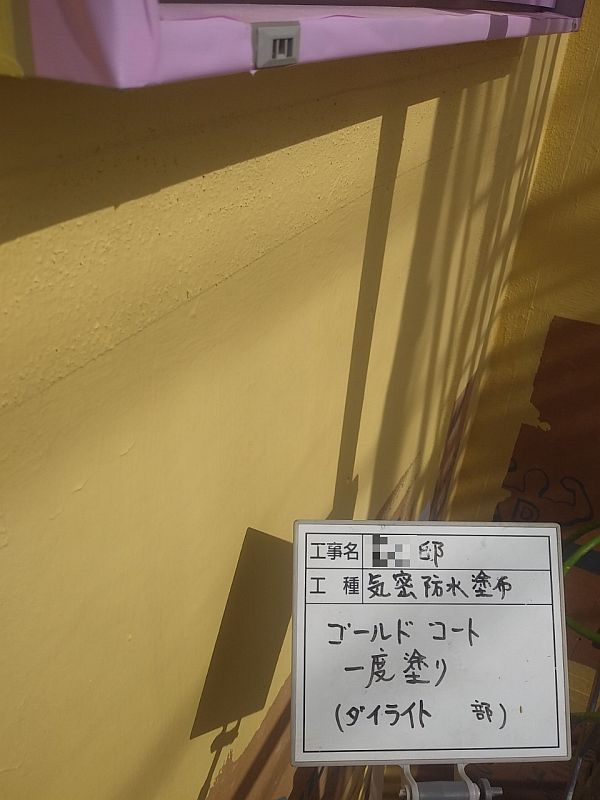 工事名 邸
工種 気密防水塗布
ゴールドコート
一度塗り
(ダイライト 部)